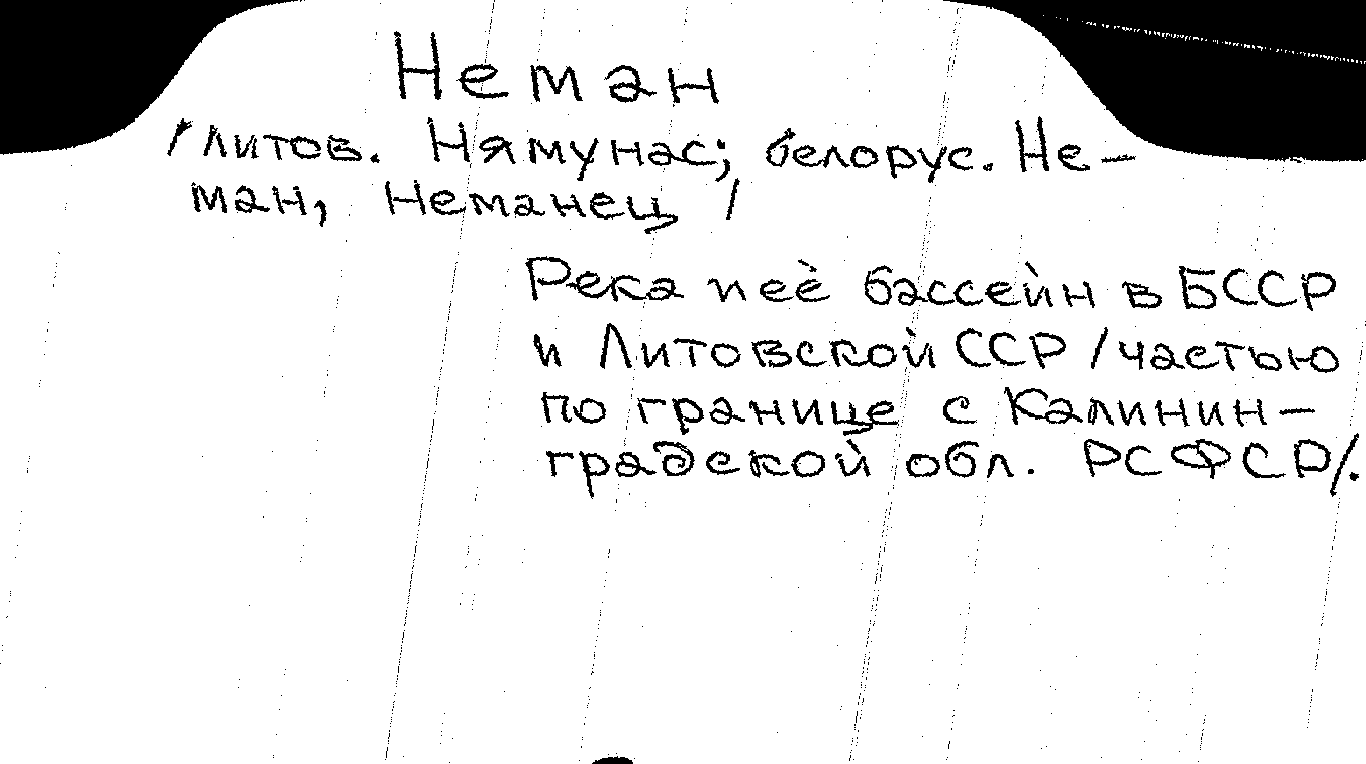 Неман
/литов. Нямунас; белорус. Не-
ман, Неманец/
Река и её бассейн в БССР
и Литовской ССР /частью
по границе с Калинин-
градской обл. РСФСР/.